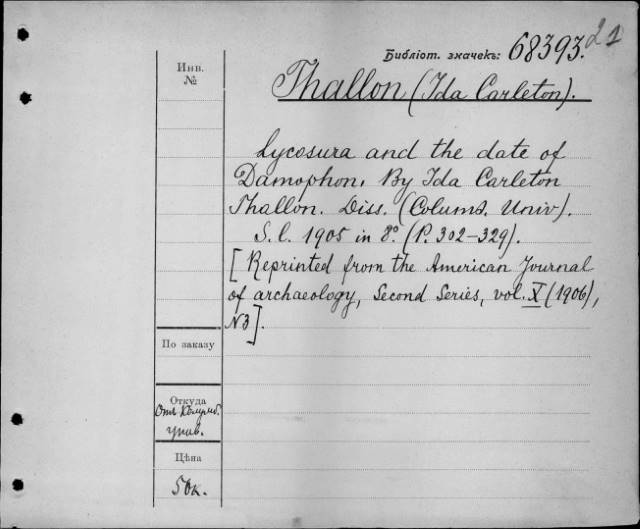 Библіот. значекъ: 68393. 21
Инв.
№
Thallon (Ida Carleton).
Lycosura and the date of
Damophon. By Ida Carleton
Thallon. Diss. (Columb. Univ).
S. l. 1905 in 8º. (P. 302-329).
[Reprinted from the American Journal
of archaeology, Second Series, vol. X (1906),
№3].
По заказу
Откуда
Отъ Колумб.
унив.
Цѣна
50к.